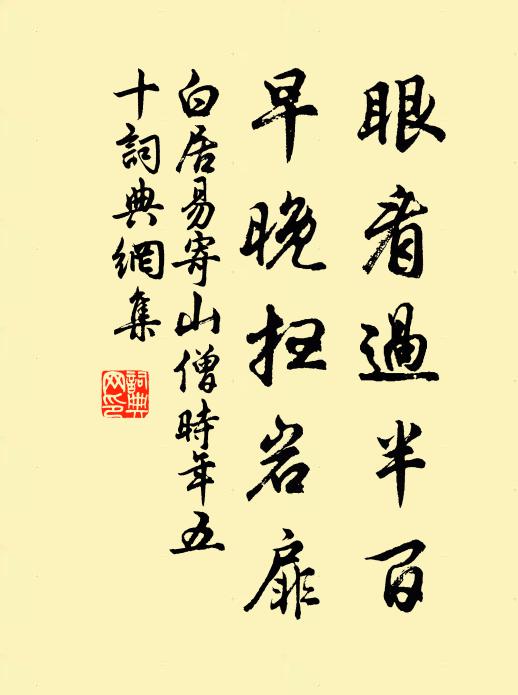 眼看過半百
早晚扫岩扉
白居易寄山僧時年五
十詞典網集
詞典
网印